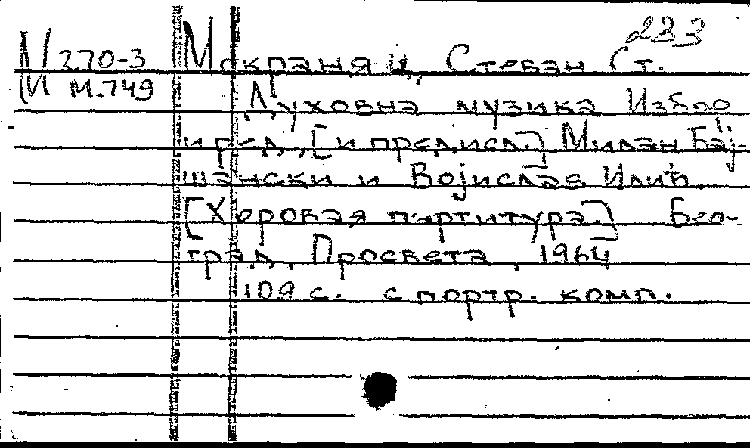 233
М 270-3 Мокрањац, Стеван Ст.
М М.749 Духовна музика Избор
и ред., [и предисл.] Милан Бај-
шански и Војислав Илић
[Хоровая партитура.] Бео-
град, Просвета, 1964
109 с. с портр. комп.